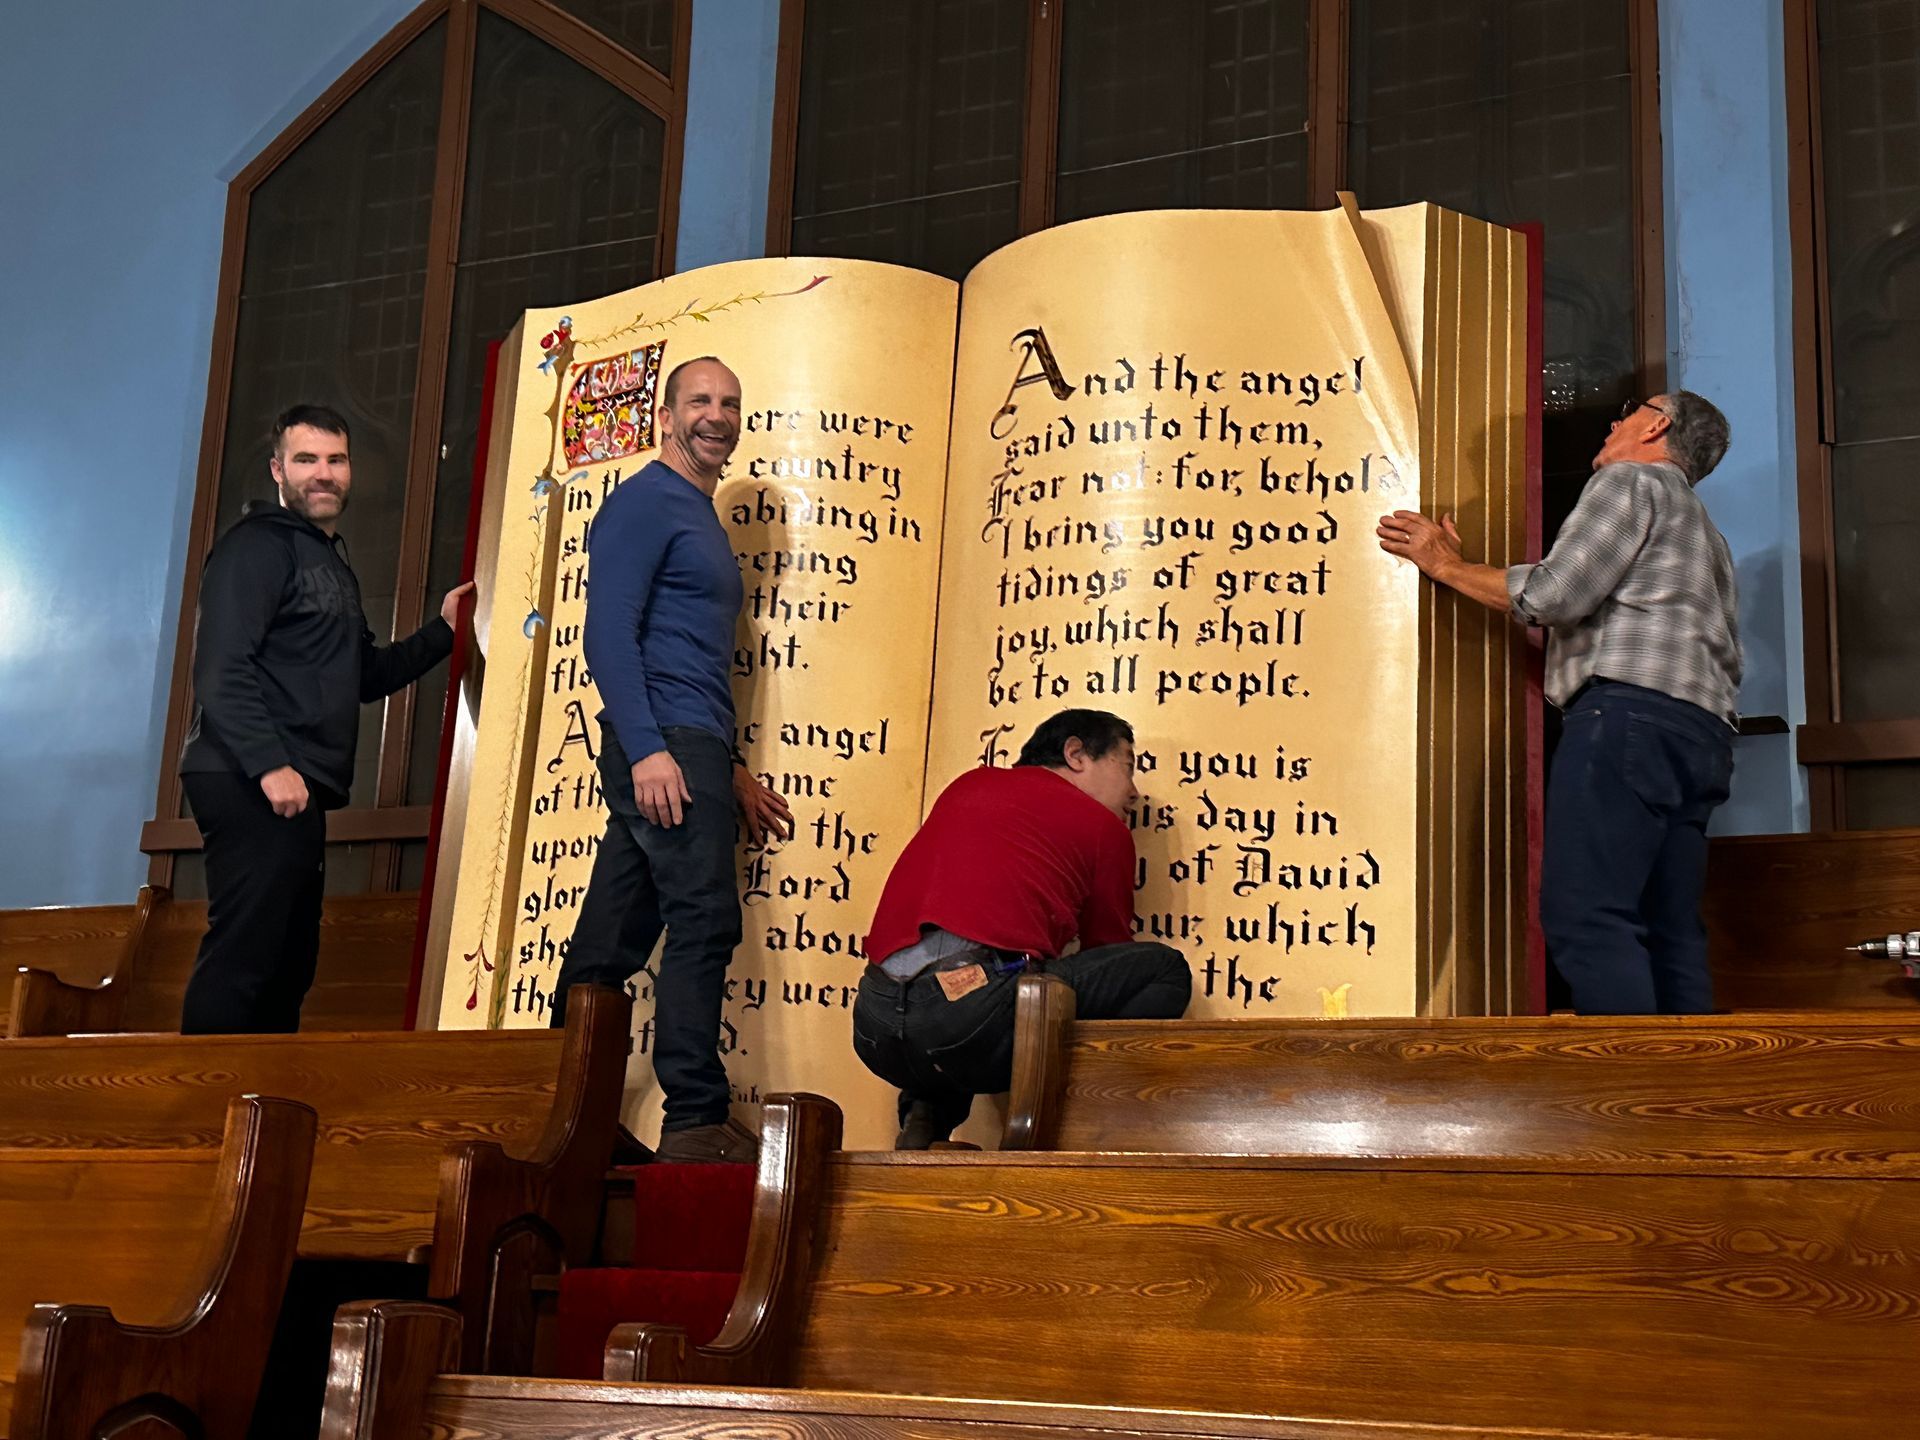 ere were
in th country
abiding in
eeping
their
ght.
A angel
of th ame
upon the
glor Lord
sho abou
the ey were
And the angel
said unto them,
Fear not: for, behold
I bring you good
tidings of great
joy, which shall
be to all people.
F o you is
his day in
y of David
our, which
the